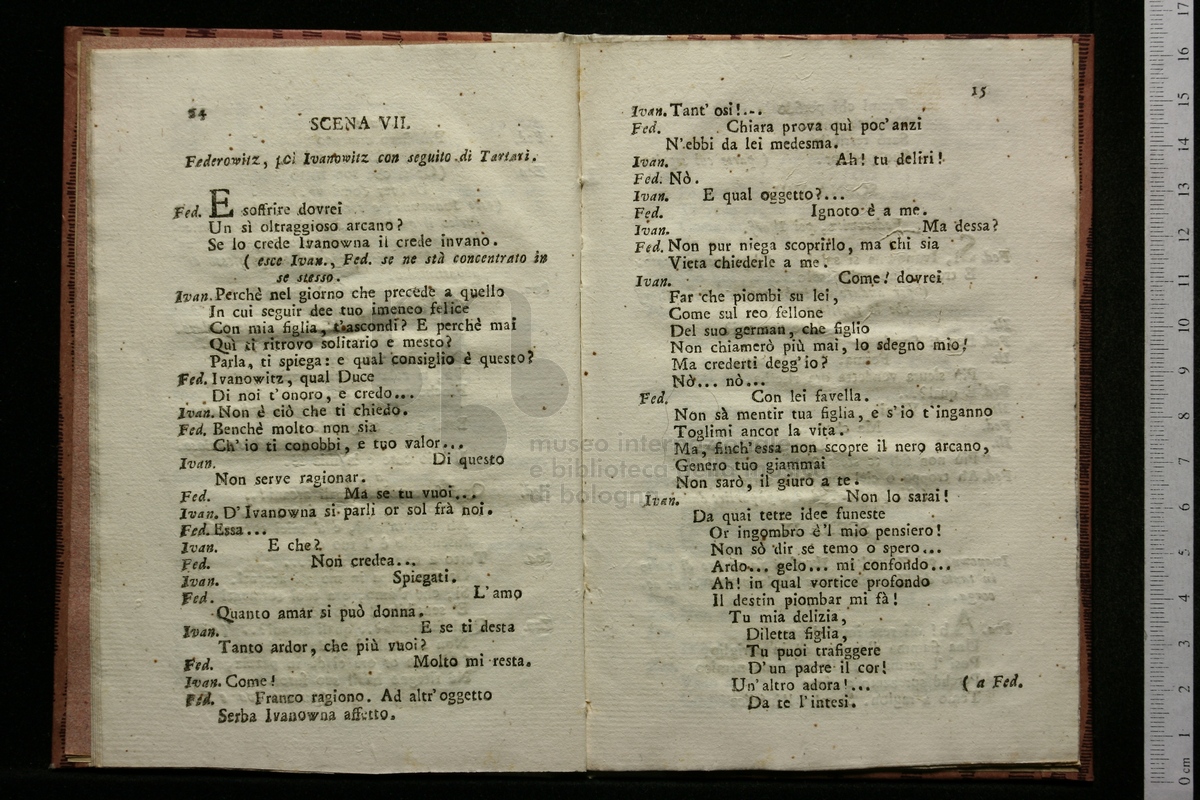 14
SCENA VII.
Federowitz, poi Ivanowitz con seguito di Tartari.
Fed. E soffrire dovrei
Un sì oltraggioso arcano?
Se lo crede Ivanowna il crede invano.
( esce Ivan., Fed. se ne stà concentrato in
se stesso.
Ivan. Perchè nel giorno che precede a quello
In cui seguir dee tuo imeneo felice
Con mia figlia, t'ascondi? E perchè mai
Quì ti ritrovo solitario e mesto?
Parla, ti spiega: e qual consiglio è questo?
Fed. Ivanowitz, qual Duce
Di noi t'onoro, e credo...
Ivan. Non è ciò che ti chiedo.
Fed. Benchè molto non sia
Ch'io ti conobbi, e tuo valor...
Ivan. Di questo
Non serve ragionar.
Fed. Ma se tu vuoi...
Ivan. D'Ivanowna si parli or sol frà noi.
Fed. Essa...
Ivan. E che?
Fed. Non credea...
Ivan. Spiegati.
Fed. L'amo
Quanto amar si può donna.
Ivan. E se ti desta
Tanto ardor, che più vuoi?
Fed. Molto mi resta.
Ivan. Come!
Fed. Franco ragiono. Ad altr'oggetto
Serba Ivanowna affetto.
15
Ivan. Tant' osi!...
Fed. Chiara prova quì poc'anzi
N'ebbi da lei medesma.
Ivan. Ah! tu deliri!
Fed. Nò.
Ivan. E qual oggetto?...
Fed. Ignoto è a me.
Ivan. Ma dessa?
Fed. Non pur niega scoprirlo, ma chi sia
Vieta chiederle a me.
Ivan. Come! dovrei
Far che piombi su lei,
Come sul reo fellone
Del suo german, che figlio
Non chiamerò più mai, lo sdegno mio!
Ma crederti degg'io?
Nò... nò...
Fed. Con lei favella.
Non sà mentir tua figlia, e s'io t'inganno
Toglimi ancor la vita.
Ma, finch'essa non scopre il nero arcano,
Genero tuo giammai
Non sarò, il giuro a te.
Ivan. Non lo sarai!
Da quai tetre idee funeste
Or ingombro è'l mio pensiero!
Non sò dir se temo o spero...
Ardo... gelo... mi confondo...
Ah! in qual vortice profondo
Il destin piombar mi fà!
Tu mia delizia,
Diletta figlia,
Tu puoi trafiggere
D'un padre il cor!
Un'altro adora!... ( a Fed.
Da te l'intesi.